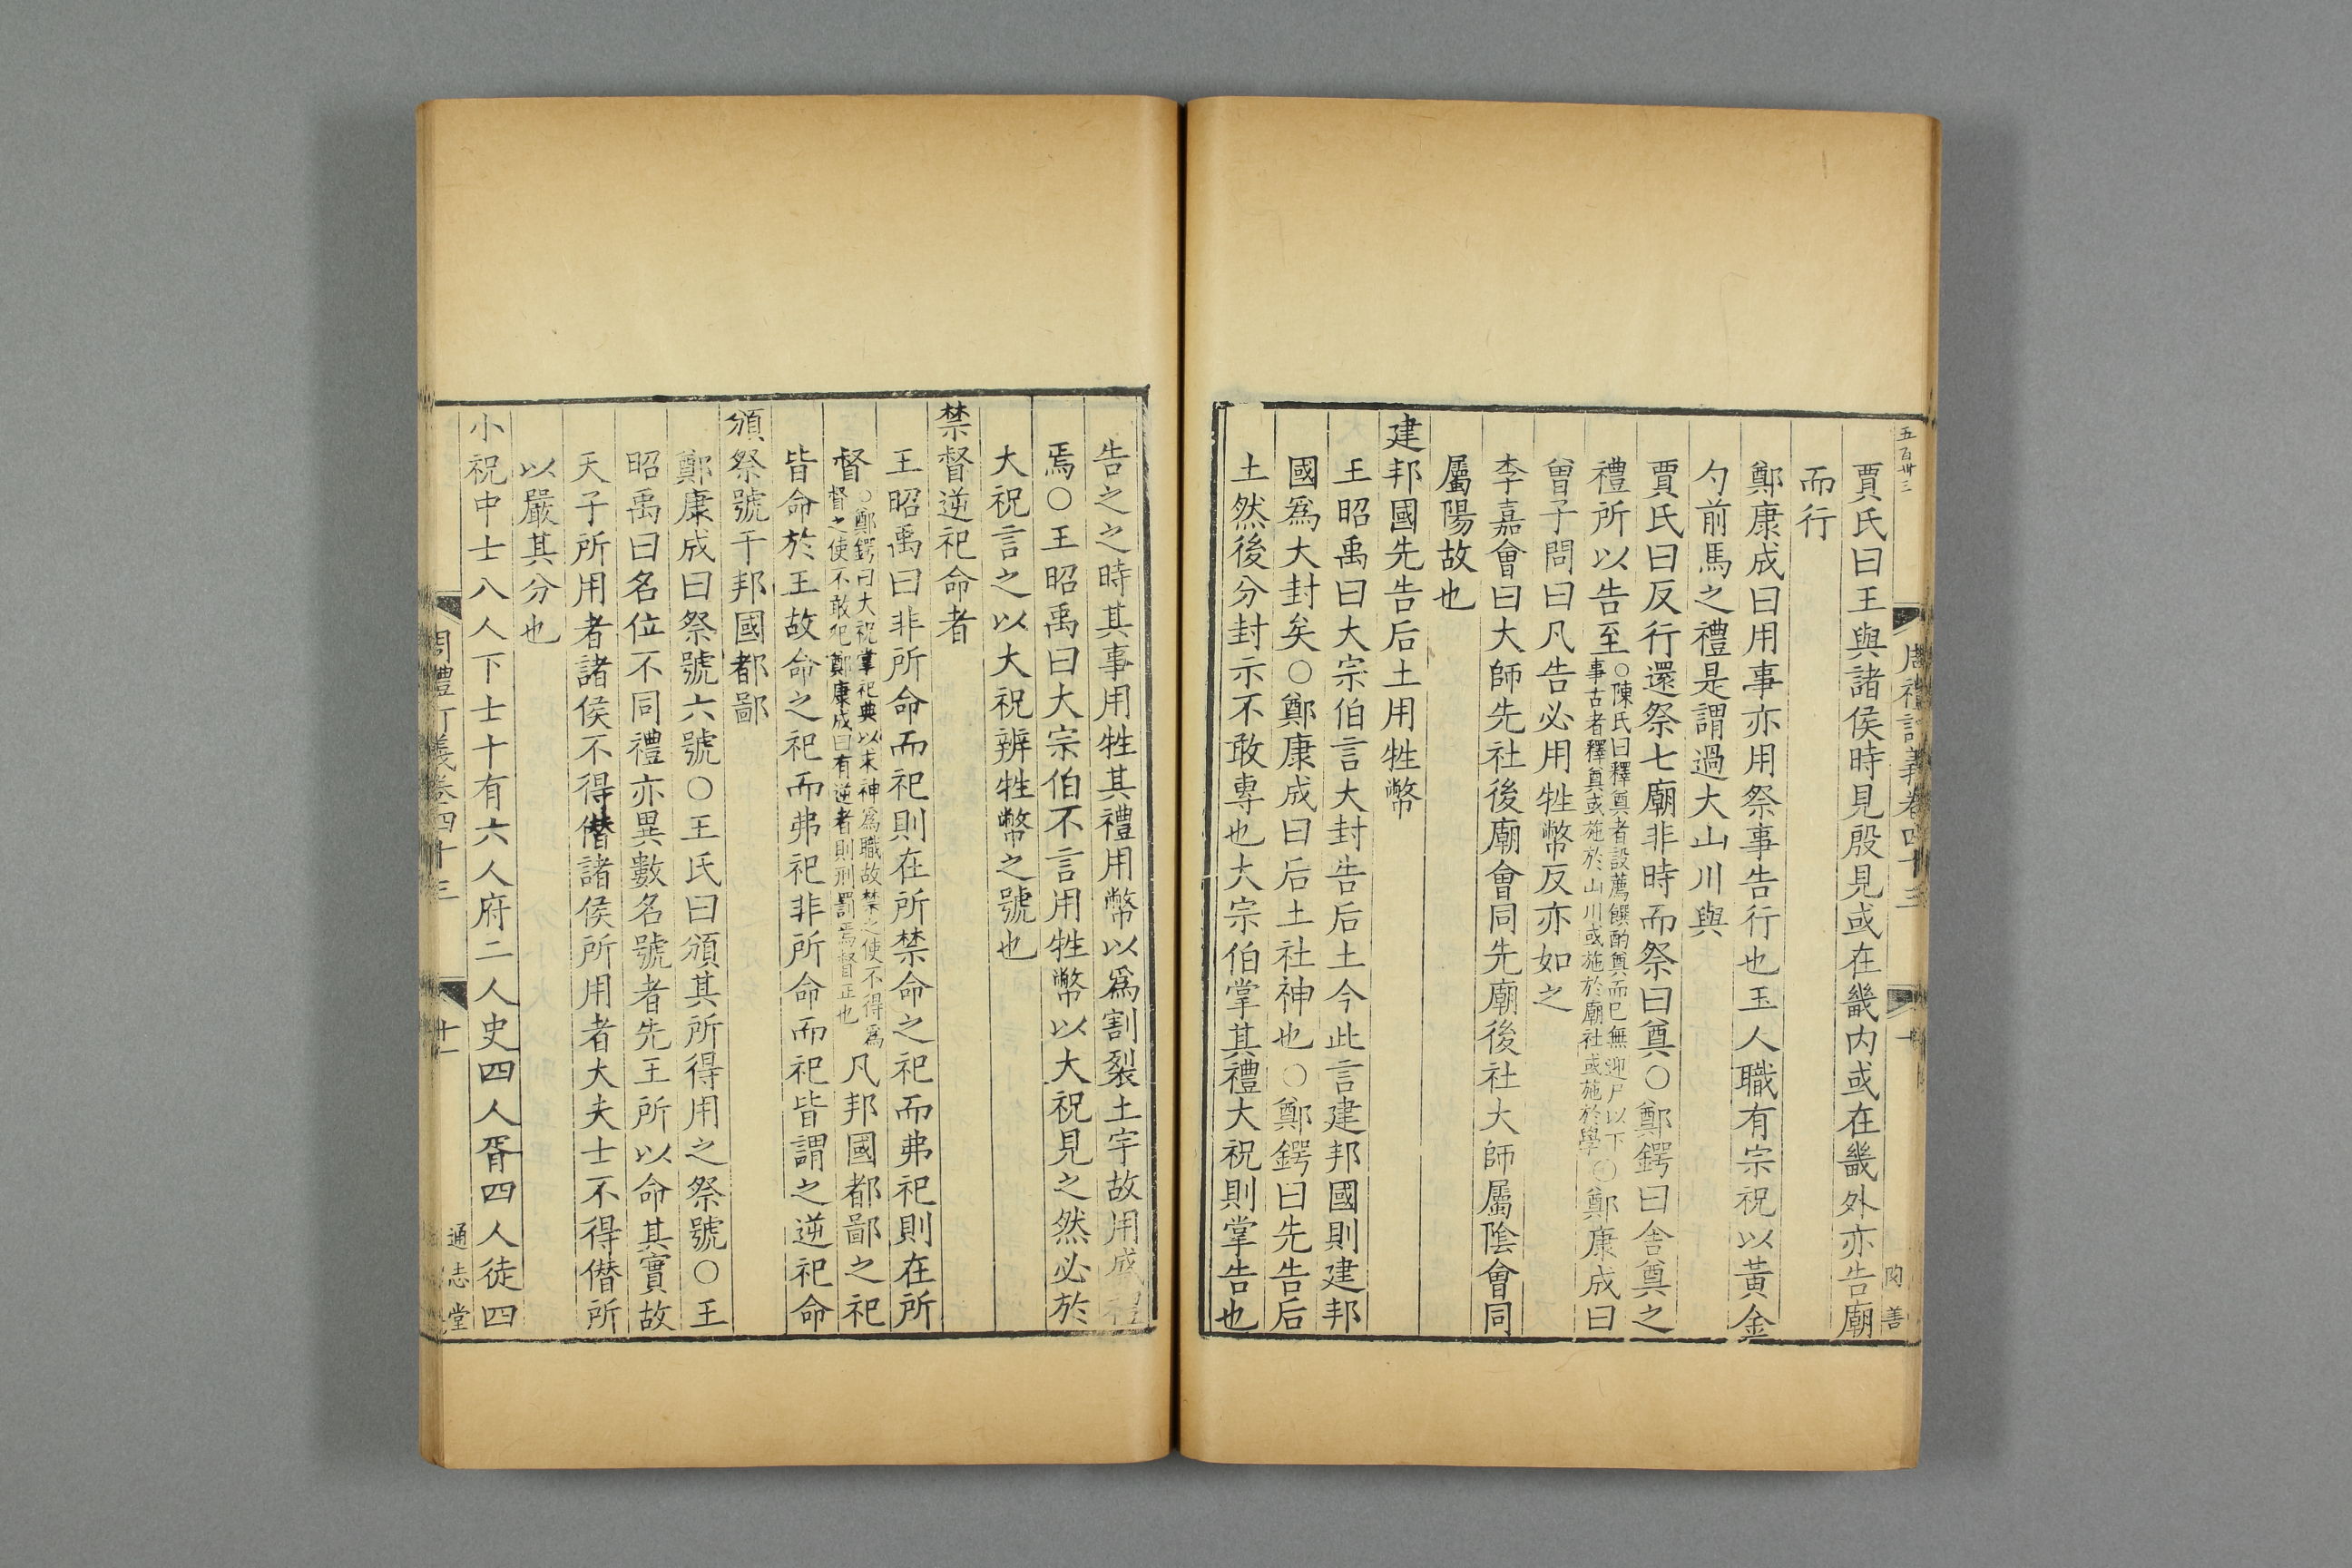 五百卅三
賈氏曰王與諸侯時見殷見或在畿内或在畿外亦告廟
而行
鄭康成曰用事亦用祭事告行也玉人職有宗祝以黃金
勺前馬之禮是謂過大山川與
賈氏曰反行還祭七廟非時而祭曰奠○鄭鍔曰舍奠之
禮所以告至○陳氏曰釋奠者設薦饌酌奠而已無迎尸以下事古者釋奠或施於山川或施於廟社或施於學○鄭康成曰
曾子問曰凡告必用牲幣反亦如之
李嘉會曰大師先社後廟會同先廟後社大師屬陰會同
屬陽故也
建邦國先告后土用牲幣
王昭禹曰大宗伯言大封告后土今此言建邦國則建邦
國爲大封矣○鄭康成曰后土社神也○鄭鍔曰先告后
土然後分封示不敢專也大宗伯掌其禮大祝則掌告也
周禮訂義卷四十三
陶善
告之之時其事用牲其禮用幣以爲割裂土宇故用盛禮
焉○王昭禹曰大宗伯不言用牲幣以大祝見之然必於
大祝言之以大祝辨牲幣之號也
禁督逆祀命者
王昭禹曰非所命而祀則在所禁命之祀而弗祀則在所
督○鄭鍔曰大祝掌祀典以求神爲職故禁之使不得爲督之使不敢犯鄭康成曰有逆者則刑罰焉督正也凡邦國都鄙之祀
皆命於王故命之祀而弗祀非所命而祀皆謂之逆祀命
頒祭號于邦國都鄙
鄭康成曰祭號六號○王氏曰頒其所得用之祭號○王
昭禹曰名位不同禮亦異數名號者先王所以命其實故
天子所用者諸侯不得僭諸侯所用者大夫士不得僭所
以嚴其分也
小祝中士八人下士十有六人府二人史四人胥四人徒四
周禮訂義卷四十三
十一
通志堂